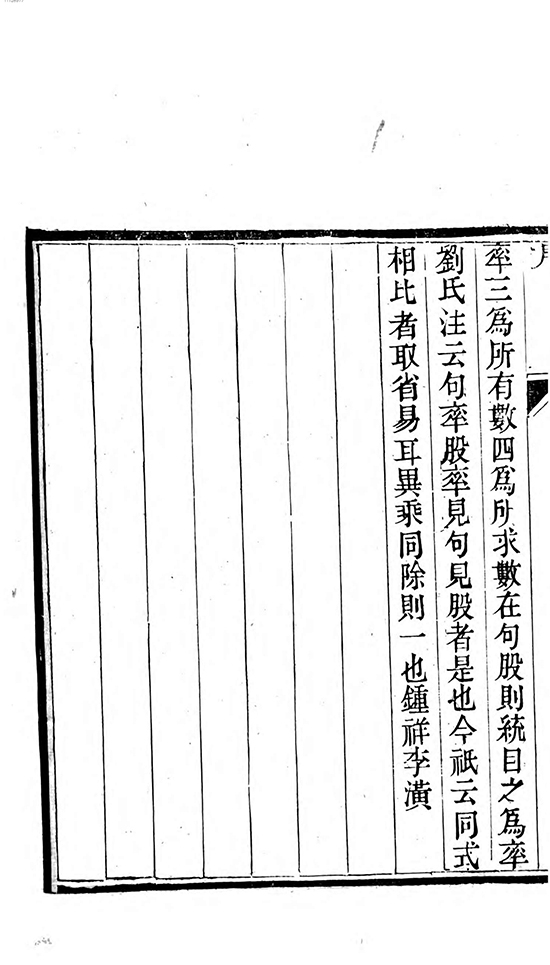 率三爲所有數四爲所求數在句股則統目之爲率
劉氏注云句率股率見句見股者是也今祇云同式
相比者取省易耳異乘同除則一也鍾祥李潢